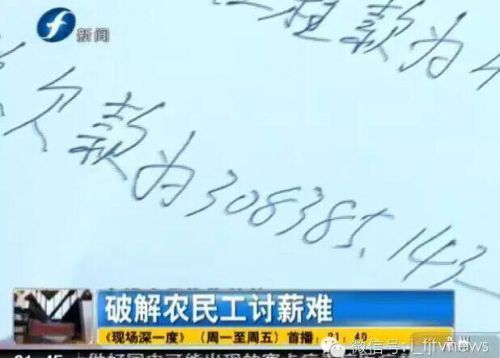 新闻
租款为4
欠款为308385.143
破解农民工讨薪难
《现场深一度》（周一至周五）首播：21:40
微信号: i_fjtvnews